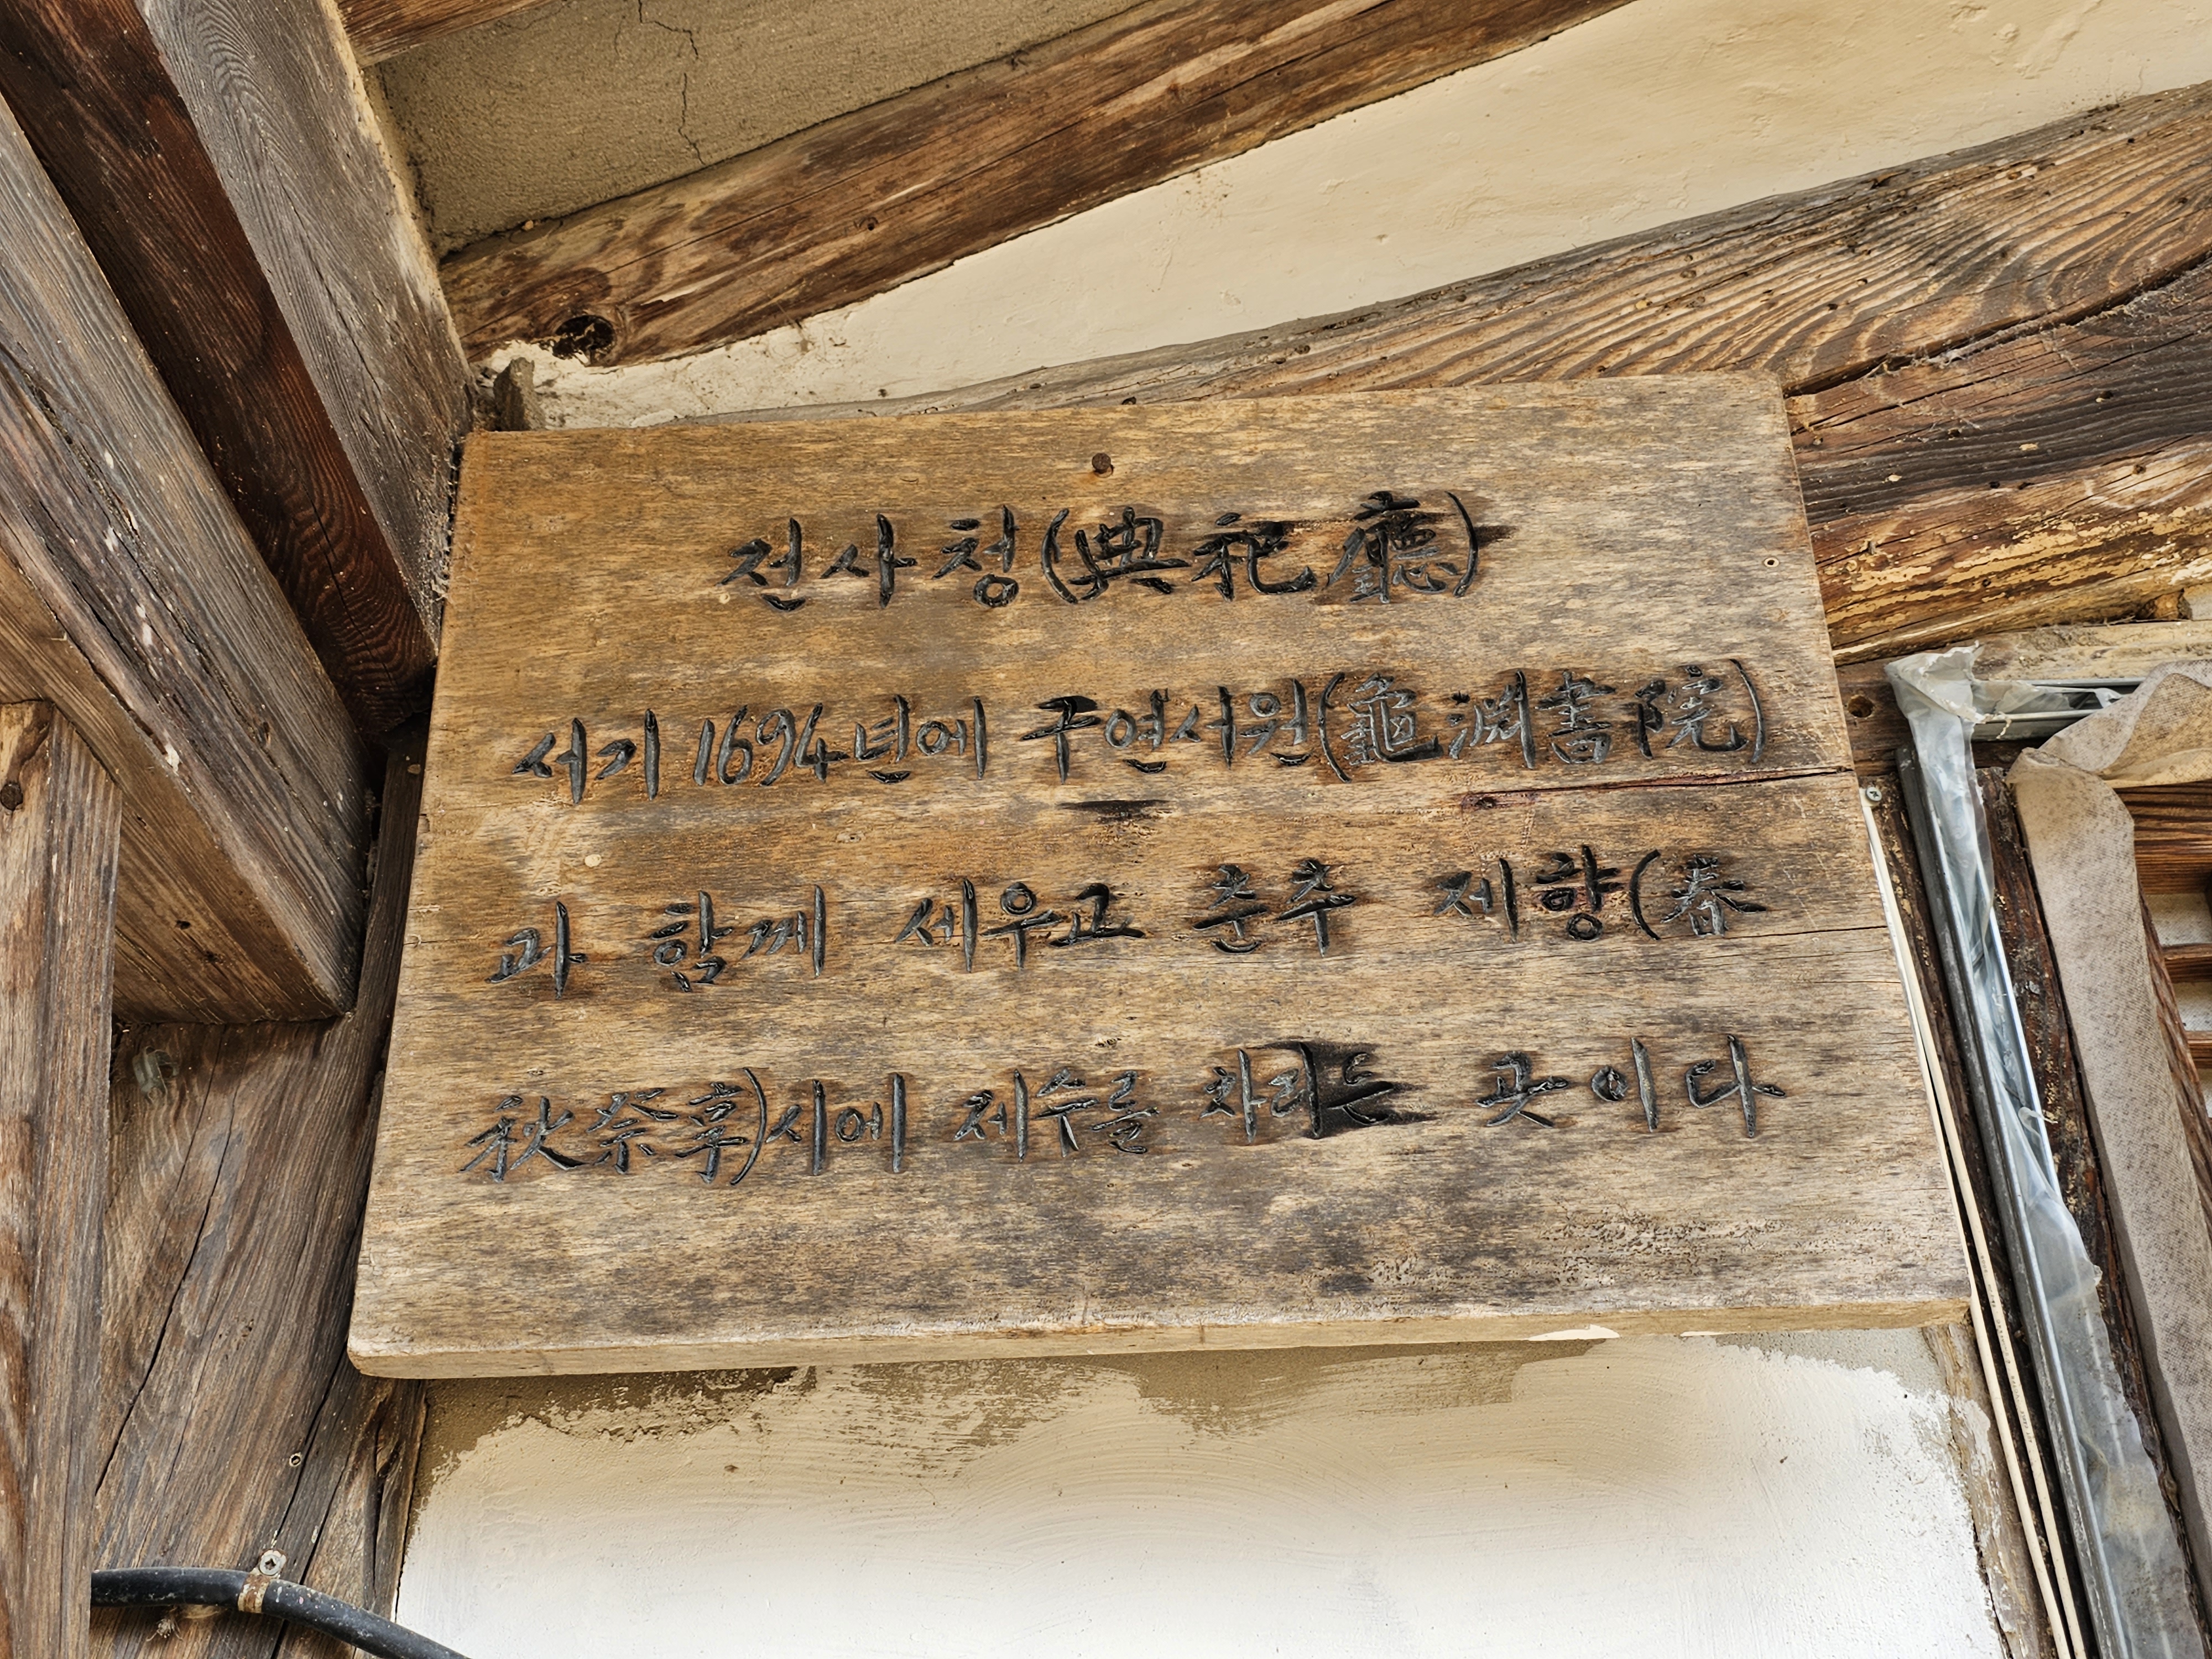 전사청(典祀廳)
서기 1694년에 구연서원(龜淵書院)
과 함께 세우고 춘추 제향(春
秋祭享)시에 제수를 차리는 곳이다